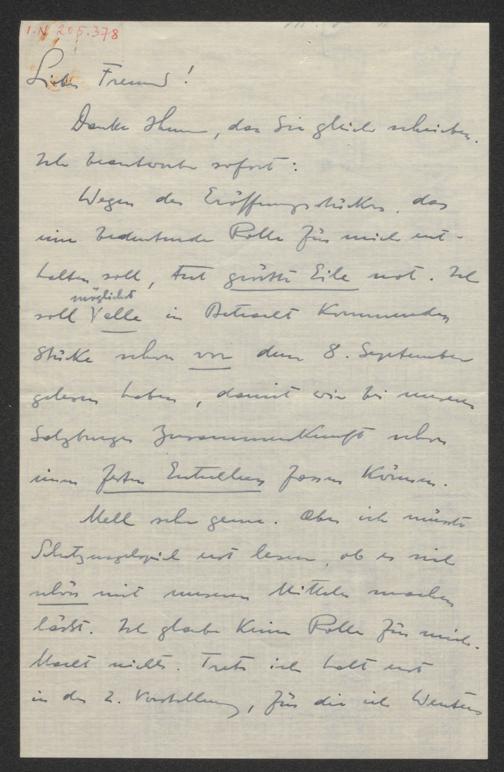 I.N. 205.378
Lieber Freund!
Danke Ihnen, dass Sie gleich schrieben.
Ich beantworte sofort:
Wegen des Eröffnungsstückes, das
eine bedeutende Rolle für mich ent-
halten soll, tut größte Eile not. Ich
möglichst
soll alle in Betracht kommenden
Stücke schon vor dem 8. September
gelesen haben, damit wir bei unserer
Salzburger Zusammenkunft schon
einen festen Entschluss fassen können.
Mell sehr gerne. Aber ich müsste
Schutzengelspiel erst lesen, ob es sich
schön mit unseren Mitteln machen
lässt. Ich glaube keine Rolle für mich.
Macht nichts. Trete ich halt erst
in der 2. Vorstellung, für die ich